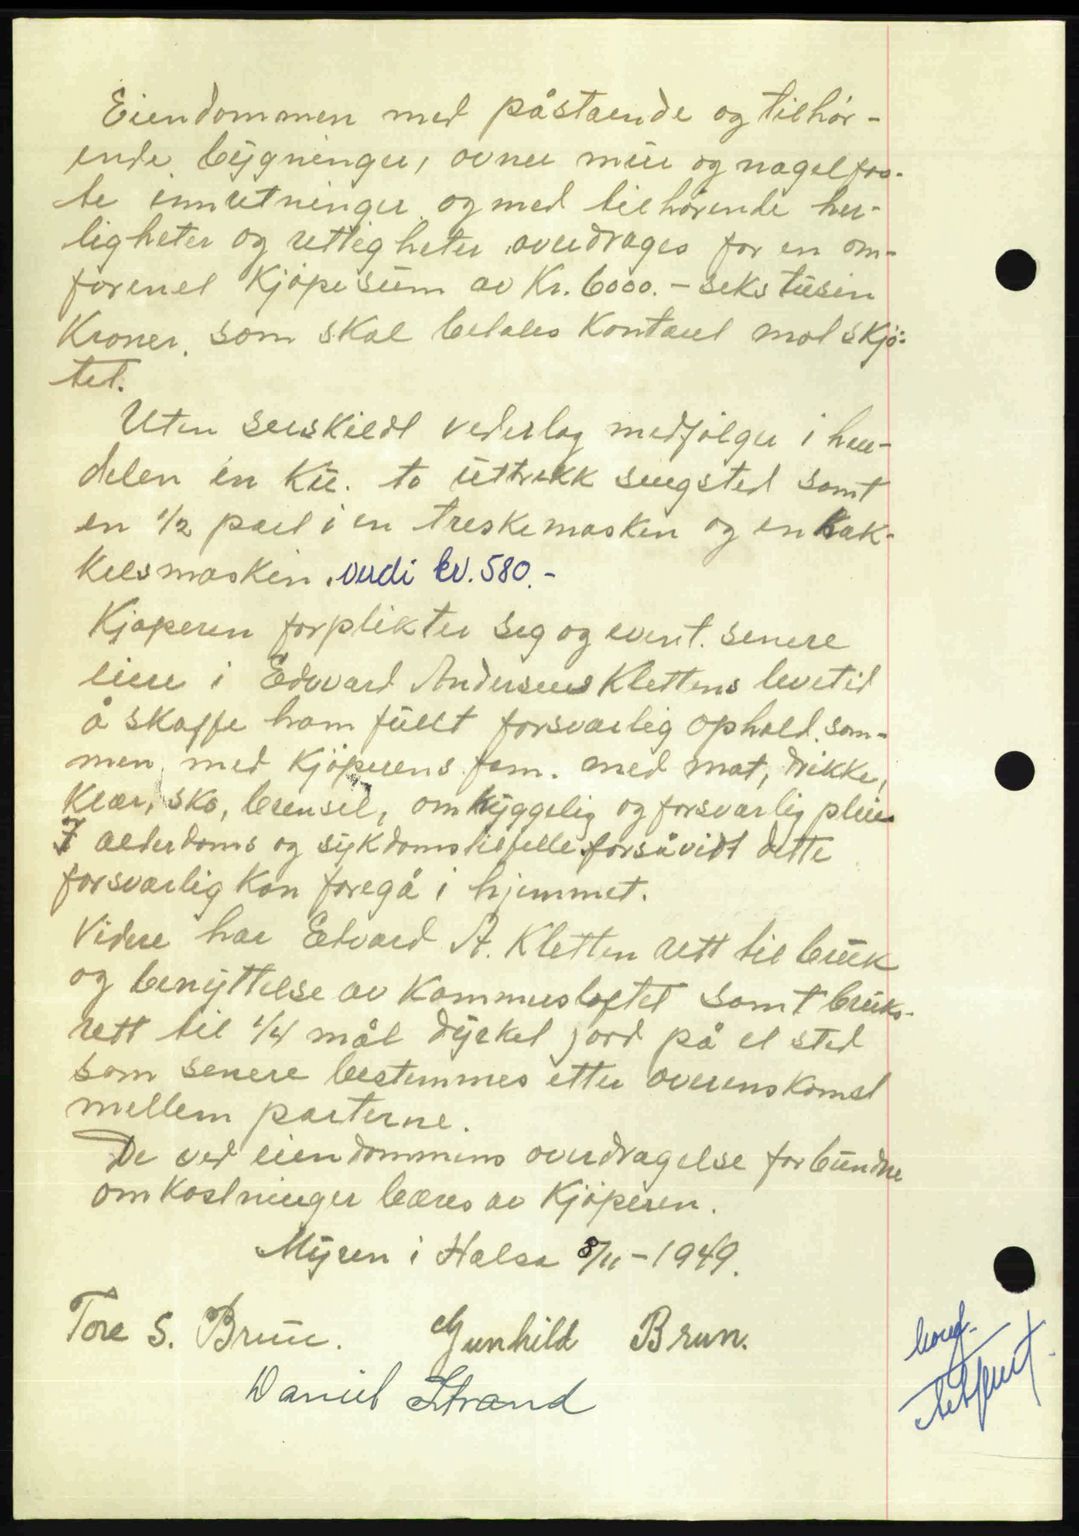 Eiendommen med påstående og tilhør-
ende bygninger, ovner mur og nagelfas-
te innretninger og med tilhørende her-
ligheter og rettigheter overdrages for en om-
forenet kjøpesum av Kr. 6000.- seks tusin
Kroner. som skal betales kontant mot skjö-
tet.
Uten serskildt vederlag medfølger i han-
delen en Ku. to uttrekk sengsted samt
en 1/2 part i en treskemaskin og en hak-
kelsmaskin. verdi kr. 580.-
Kjøperen forplikter seg og event. senere
eiere i Edvard Andersens Klettens levetid
å skaffe ham fullt forsvarlig ophold. sam-
men med kjøperens fam. med mat, drikke,
klær, sko, brensel, omhyggelig og forsvarlig pleie
I alderdoms og sykdomstilfelle forsåvidt dette
forsvarlig kan foregå i hjemmet.
Videre har Edvard A. Kletten rett til bruk
og benyttelse av kammersloftet samt bruks-
rett til 1/4 mål dyrket jord på et sted
som senere bestemmes etter overenskomst
mellem parterne.
De ved eiendommens overdragelse forbundne
omkostninger bæres av Kjøperen.
Myren i Halsa 8/11-1949.
Tore S. Brun. Gunhild Brun.
Daniel Strand